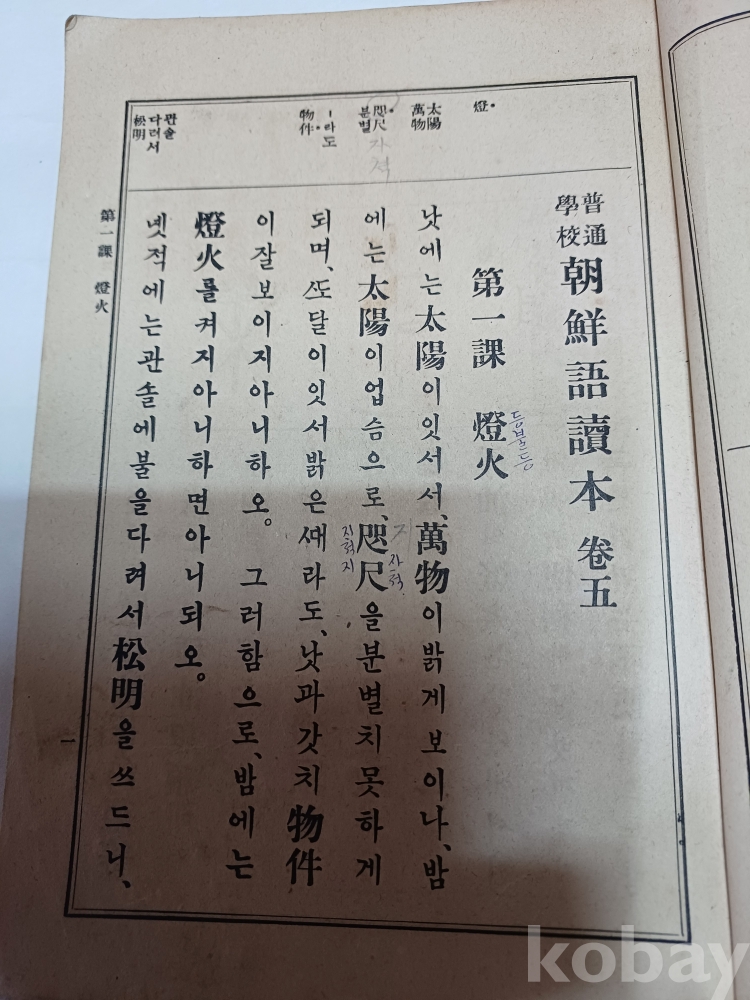 燈
太陽
萬物
咫尺
분별
ー라도
物件
관솔
다려서
松明
普通
學校
朝鮮語讀本 卷五
第一課 燈火
등불등
낫에는太陽이잇서서、萬物이밝게보이나、밤
에는太陽이업슴으로、咫尺을분별치못하게
되며、ᄯᅩ달이잇서밝은ᄯᅢ라도、낫과갓치物件
이잘보이지아니하오。 그러함으로、밤에는
燈火를켜지아니하면아니되오。
녯적에는관솔에불을다려서松明을쓰드니、
第一課 燈火
一
kobay